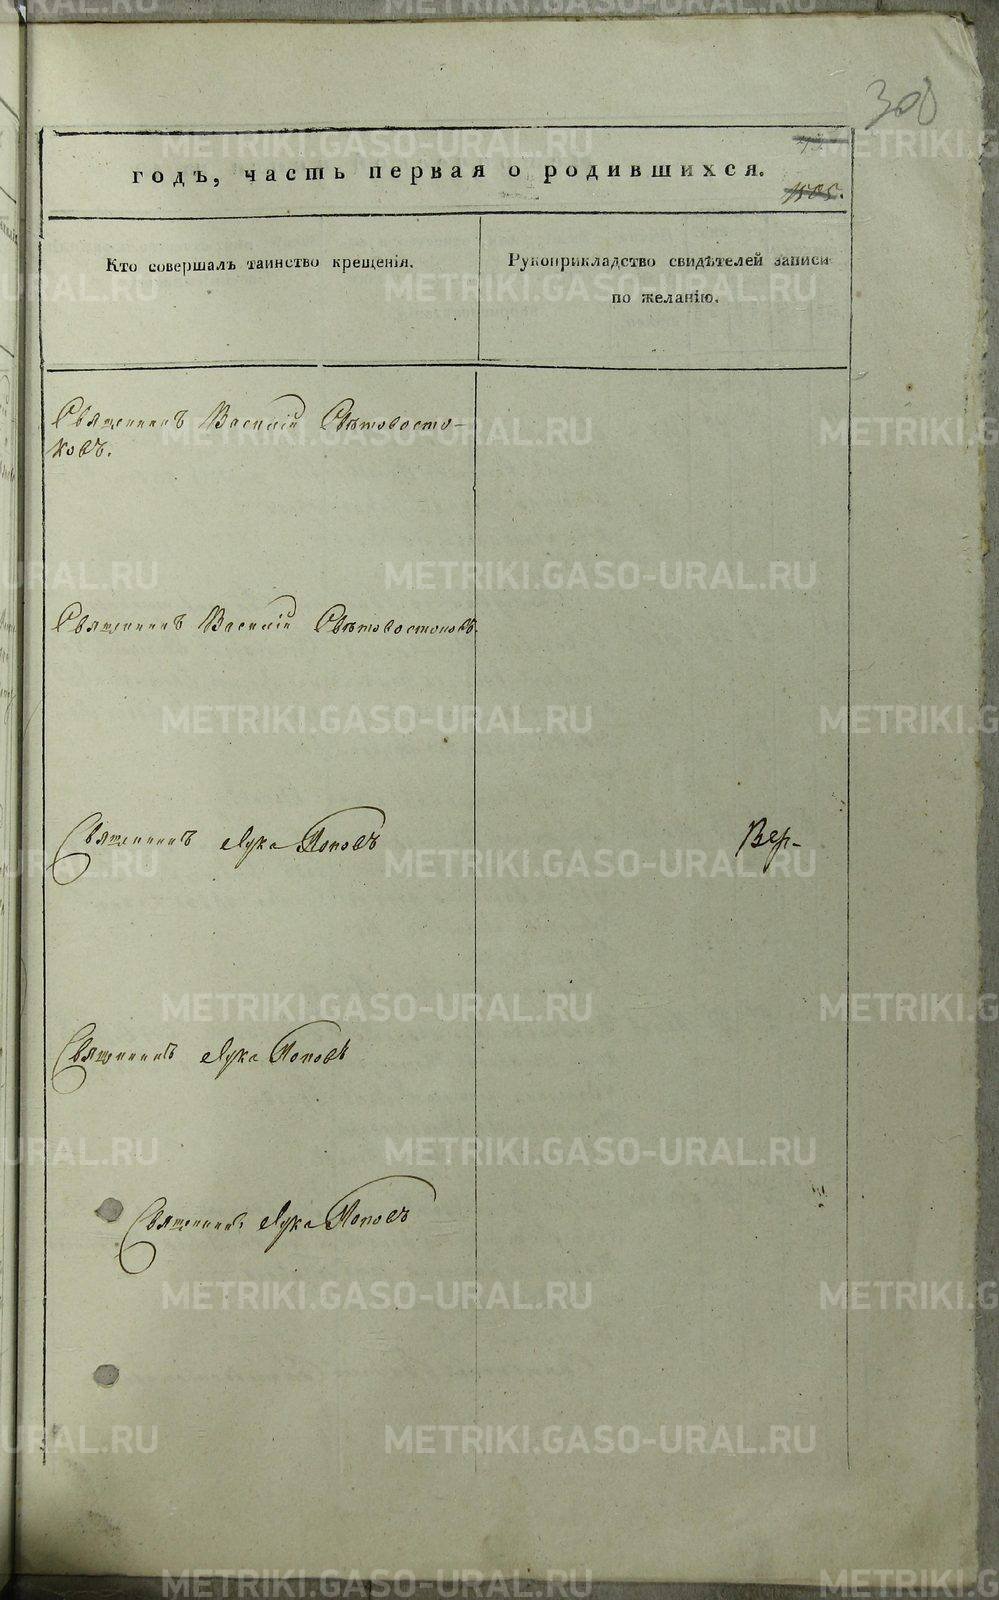 300
годъ, часть первая о родившихся.
1505.
Кто совершалъ таинство крещенія.
Рукоприкладство свидѣтелей записи
по желанію.
Священникъ Василій Свѣтовосто-
ковъ.
Священникъ Василій Свѣтовостоковъ.
Священникъ Лука Поповъ
Вер-
Священникъ Лука Поповъ
Священникъ Лука Поповъ
METRIKI.GASO-URAL.RU